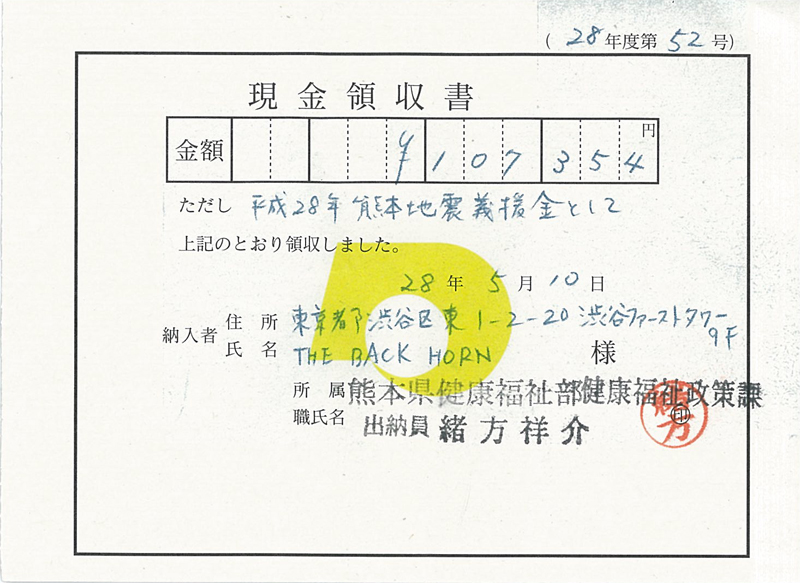 (28年度第52号)
現金領収書
金額 ¥107354円
ただし 平成28年熊本地震義援金として
上記のとおり領収しました。
28年5月10日
納入者 住所 東京都渋谷区東1-2-20渋谷ファーストタワー9F
氏名 THE BACK HORN 様
所属 熊本県健康福祉部健康福祉政策課
職氏名 出納員 緒方祥介
印
緒方